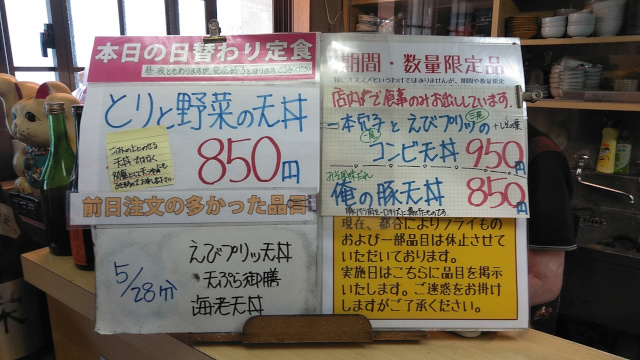 本日の日替わり定食
とりと野菜の天丼
850円
前日注文の多かった品目
5/28分
えびプリッ天丼
天ぷら御膳
海老天丼
期間・数量限定品
店内で食事のみお出ししています。
一本穴子とえびプリッの
コンビ天丼 950円
俺の豚天丼 850円
現在、都合によりフライもの
および一部品目は休止させて
いただいております。
実施日はこちらに品目を掲示
いたします。ご迷惑をお掛け
しますがご了承ください。